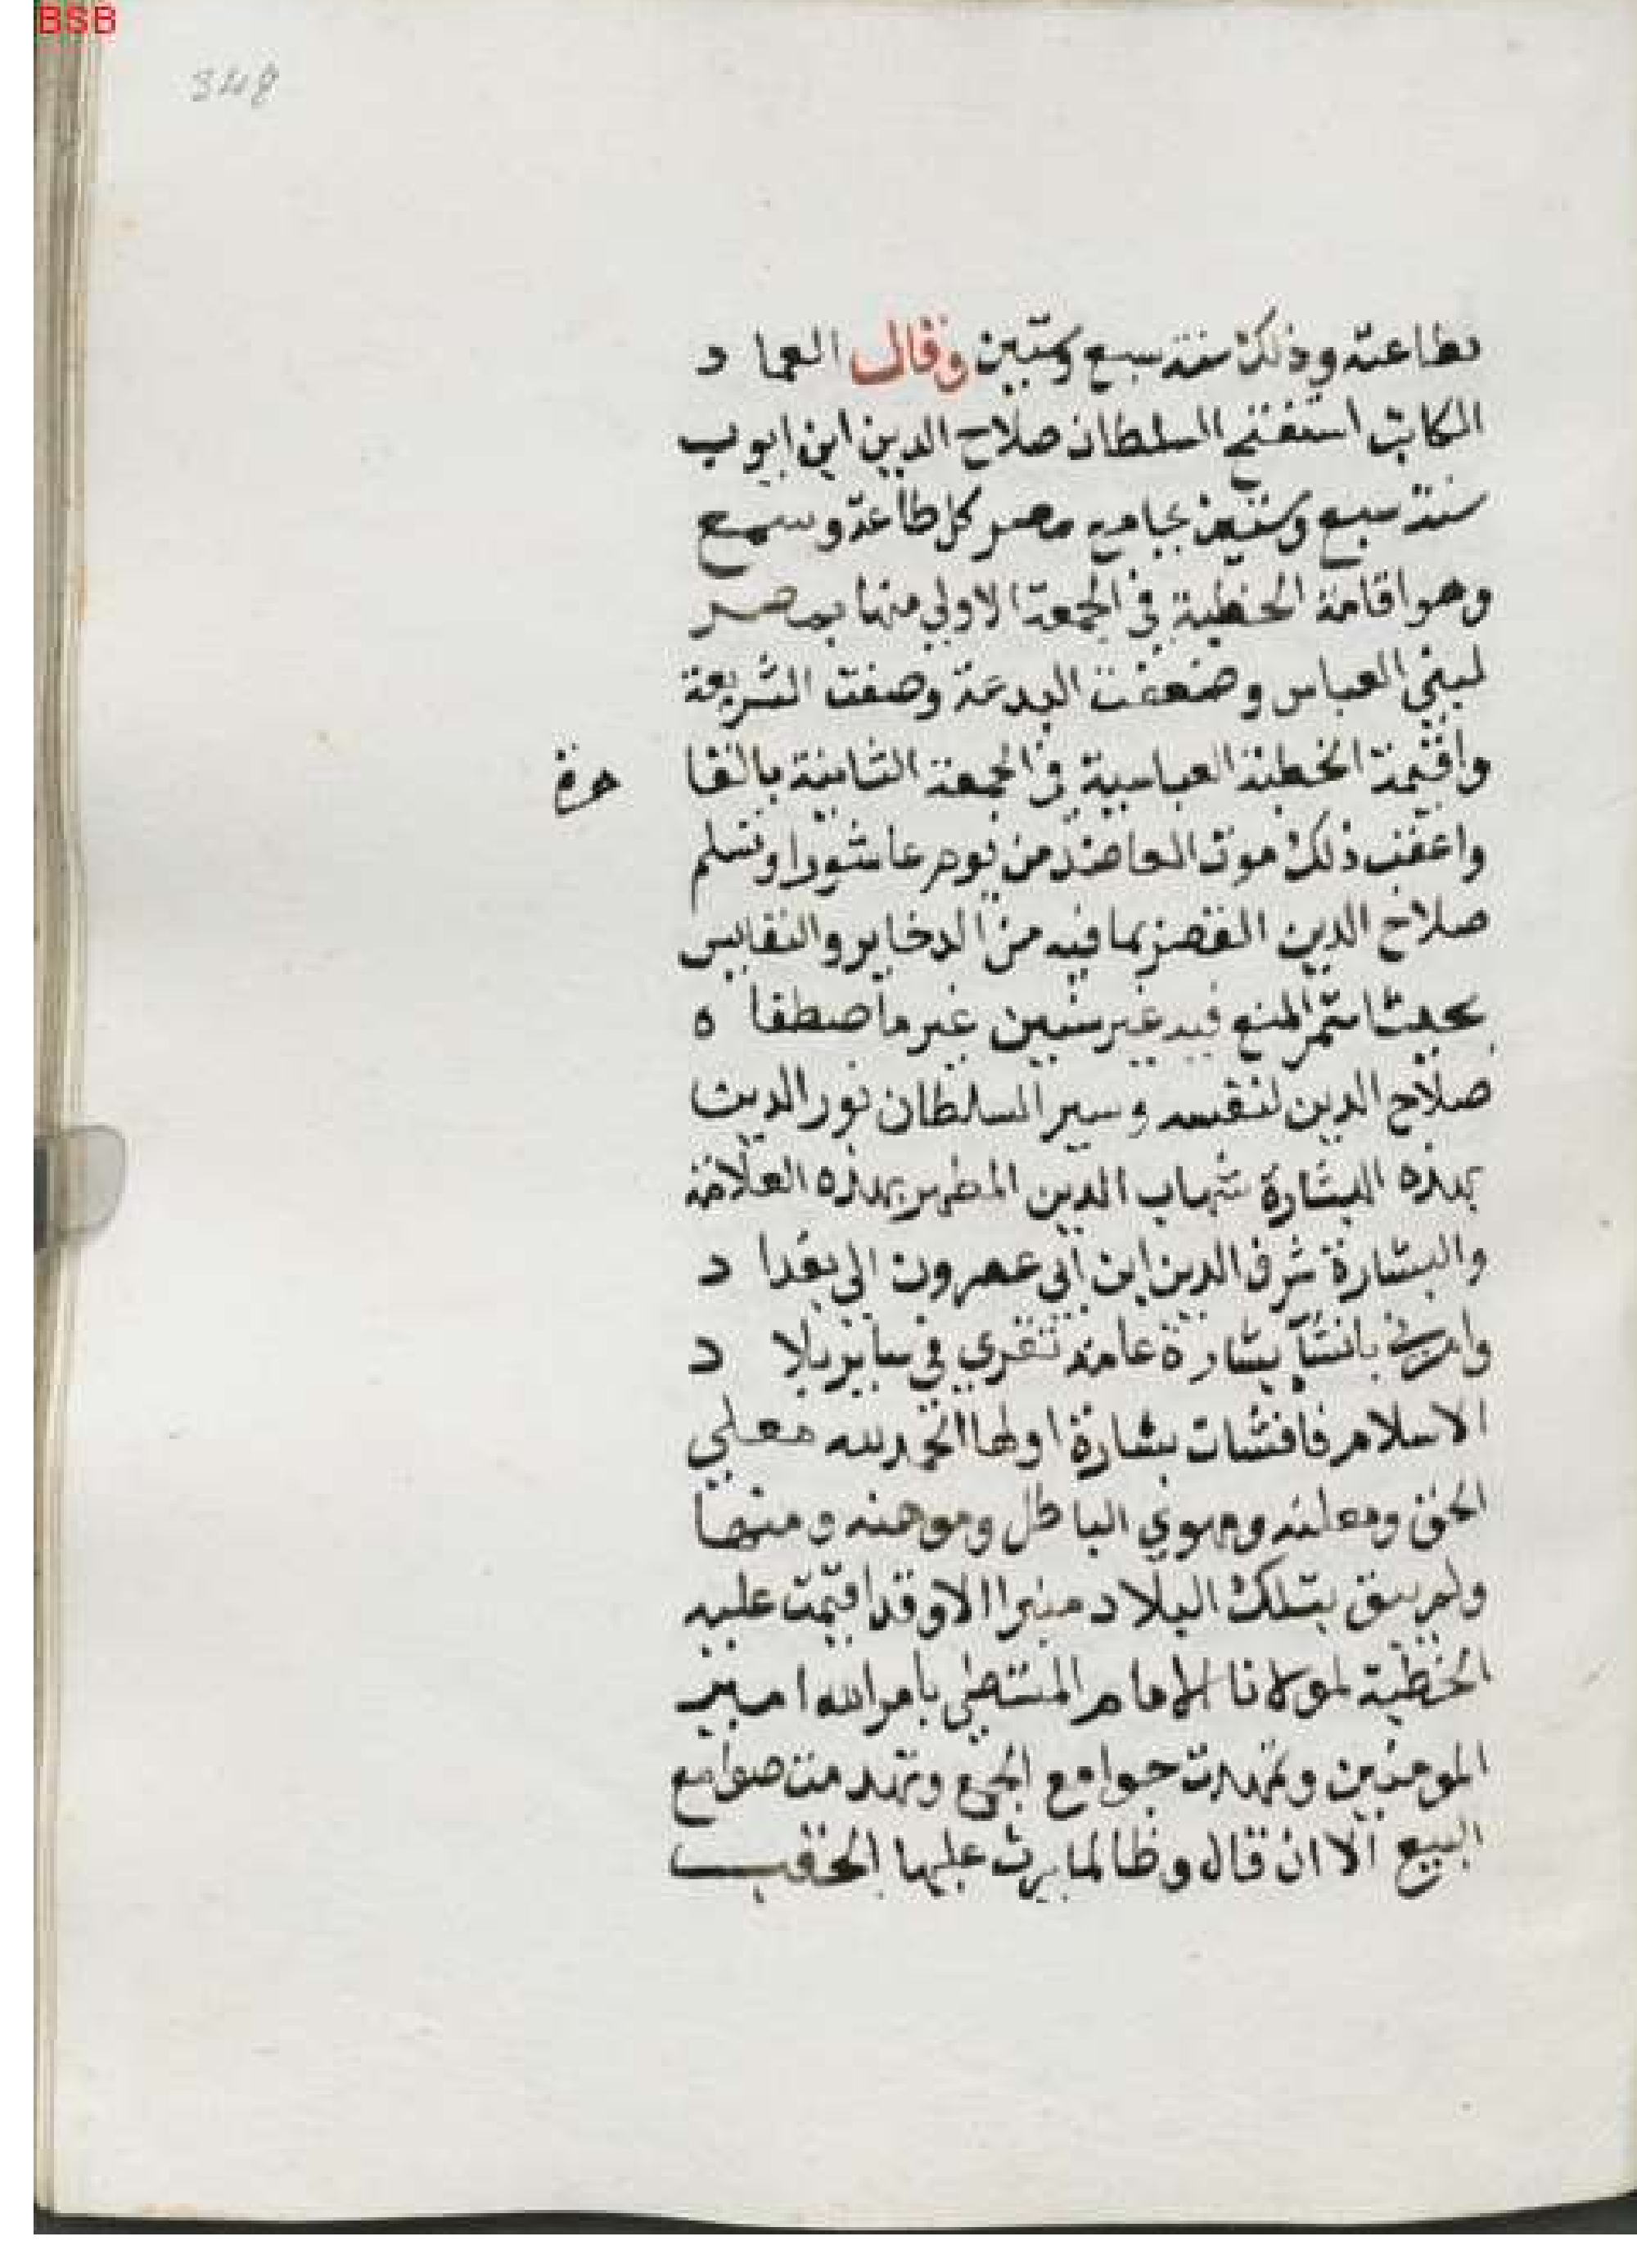 BSB
348
بطاعته وذلك سنة سبع وستين وقال العماد
الكاتب استفتح السلطان صلاح الدين ابن ايوب
سنة سبع وستين بجامع مصر كل طاعة وسمع
وهو اقامة الخطبة في الجمعة الاولي منها بمصر
لبني العباس وضعفت البدعة وصفت الشريعة
واقيمت الخطبة العباسية في الجمعة الثانية بالقا هرة
واعقب ذلك موت العاضد من يوم عاشورا وتسلم
صلاح الدين القصر بما فيه من الدخاير والنفايس
بحيث استمر المنع فيه غير سنين غير ما اصطفاه
صلاح الدين لنفسه وسير السلطان نور الدين
بهذه البشارة شهاب الدين المطهر بهذه العلامة
والبشارة شرف الدين ابن ابي عصرون الي بغداد
وامرني بانشآ بشارة عامة تقري في ساير بلاد
الاسلام فانشات بشارة اولها الحمد لله معلي
الحق ومعلنه وموهي الباطل وموهنه ومنها
ولم يبق بتلك البلاد منبرا الا وقد اقيمت عليه
الخطبة لمولانا الامام المستضي بامر الله امير
المومنين وتمهدت جوامع الجمع وتهدمت صوامع
البيع الا ان قال وطالما مرت عليها الحقب